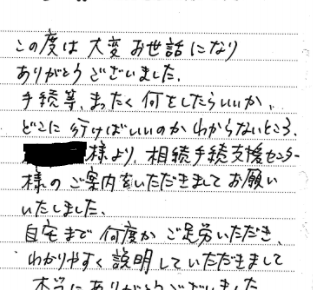 この度は大変お世話になり
ありがとうございました。
手続等、まったく何をしたらいいか、
どこに行けばいいのかわからないところ、
様より、相続手続支援センター
様のご案内をいただきましてお願い
いたしました。
自宅まで何度かご足労いただき、
わかりやすく説明していただきまして
本当にありがとうございました